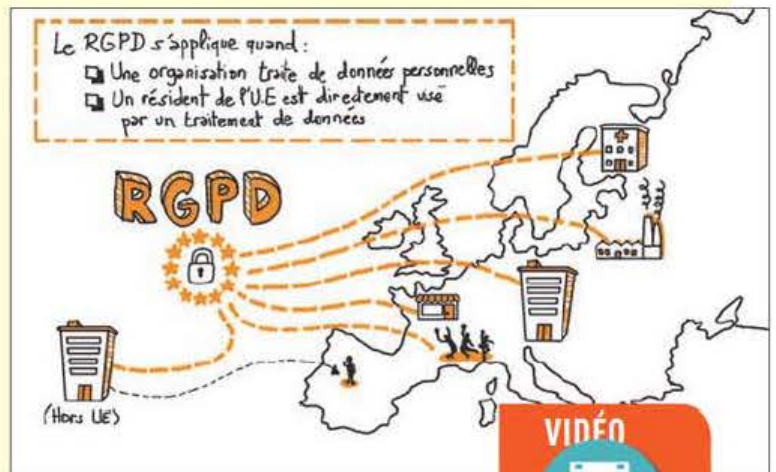 Le RGPD s'applique quand :
Une organisation traite de données personnelles
Un résident de l'U.E est directement visé
par un traitement de données
RGPD
(Hors UE)
VIDÉO